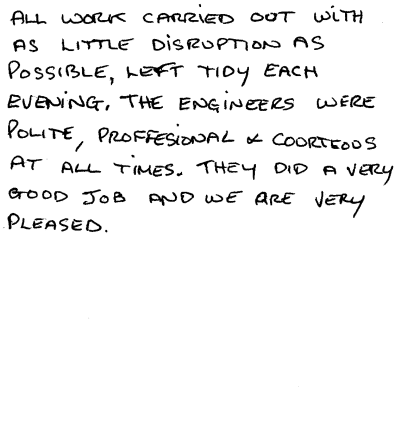 ALL WORK CARRIED OUT WITH
AS LITTLE DISRUPTION AS
POSSIBLE, LEFT TIDY EACH
EVENING. THE ENGINEERS WERE
POLITE, PROFFESIONAL & COORTEOUS
AT ALL TIMES. THEY DID A VERY
GOOD JOB AND WE ARE VERY
PLEASED.